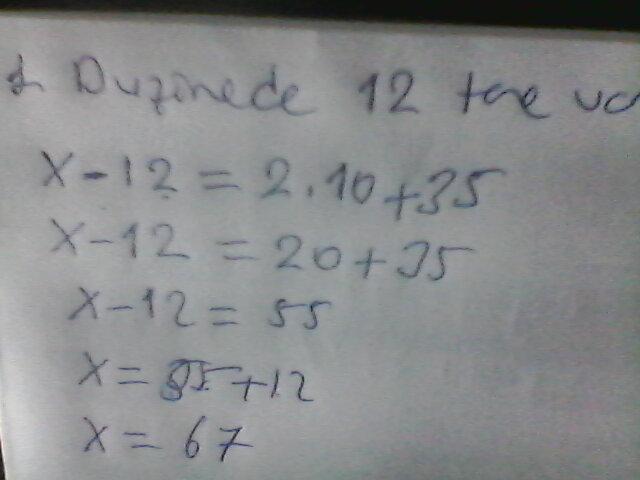 1 Düzinede 12 tane va
x-12=2.10+35
x-12=20+35
x-12=55
x=55+12
x=67